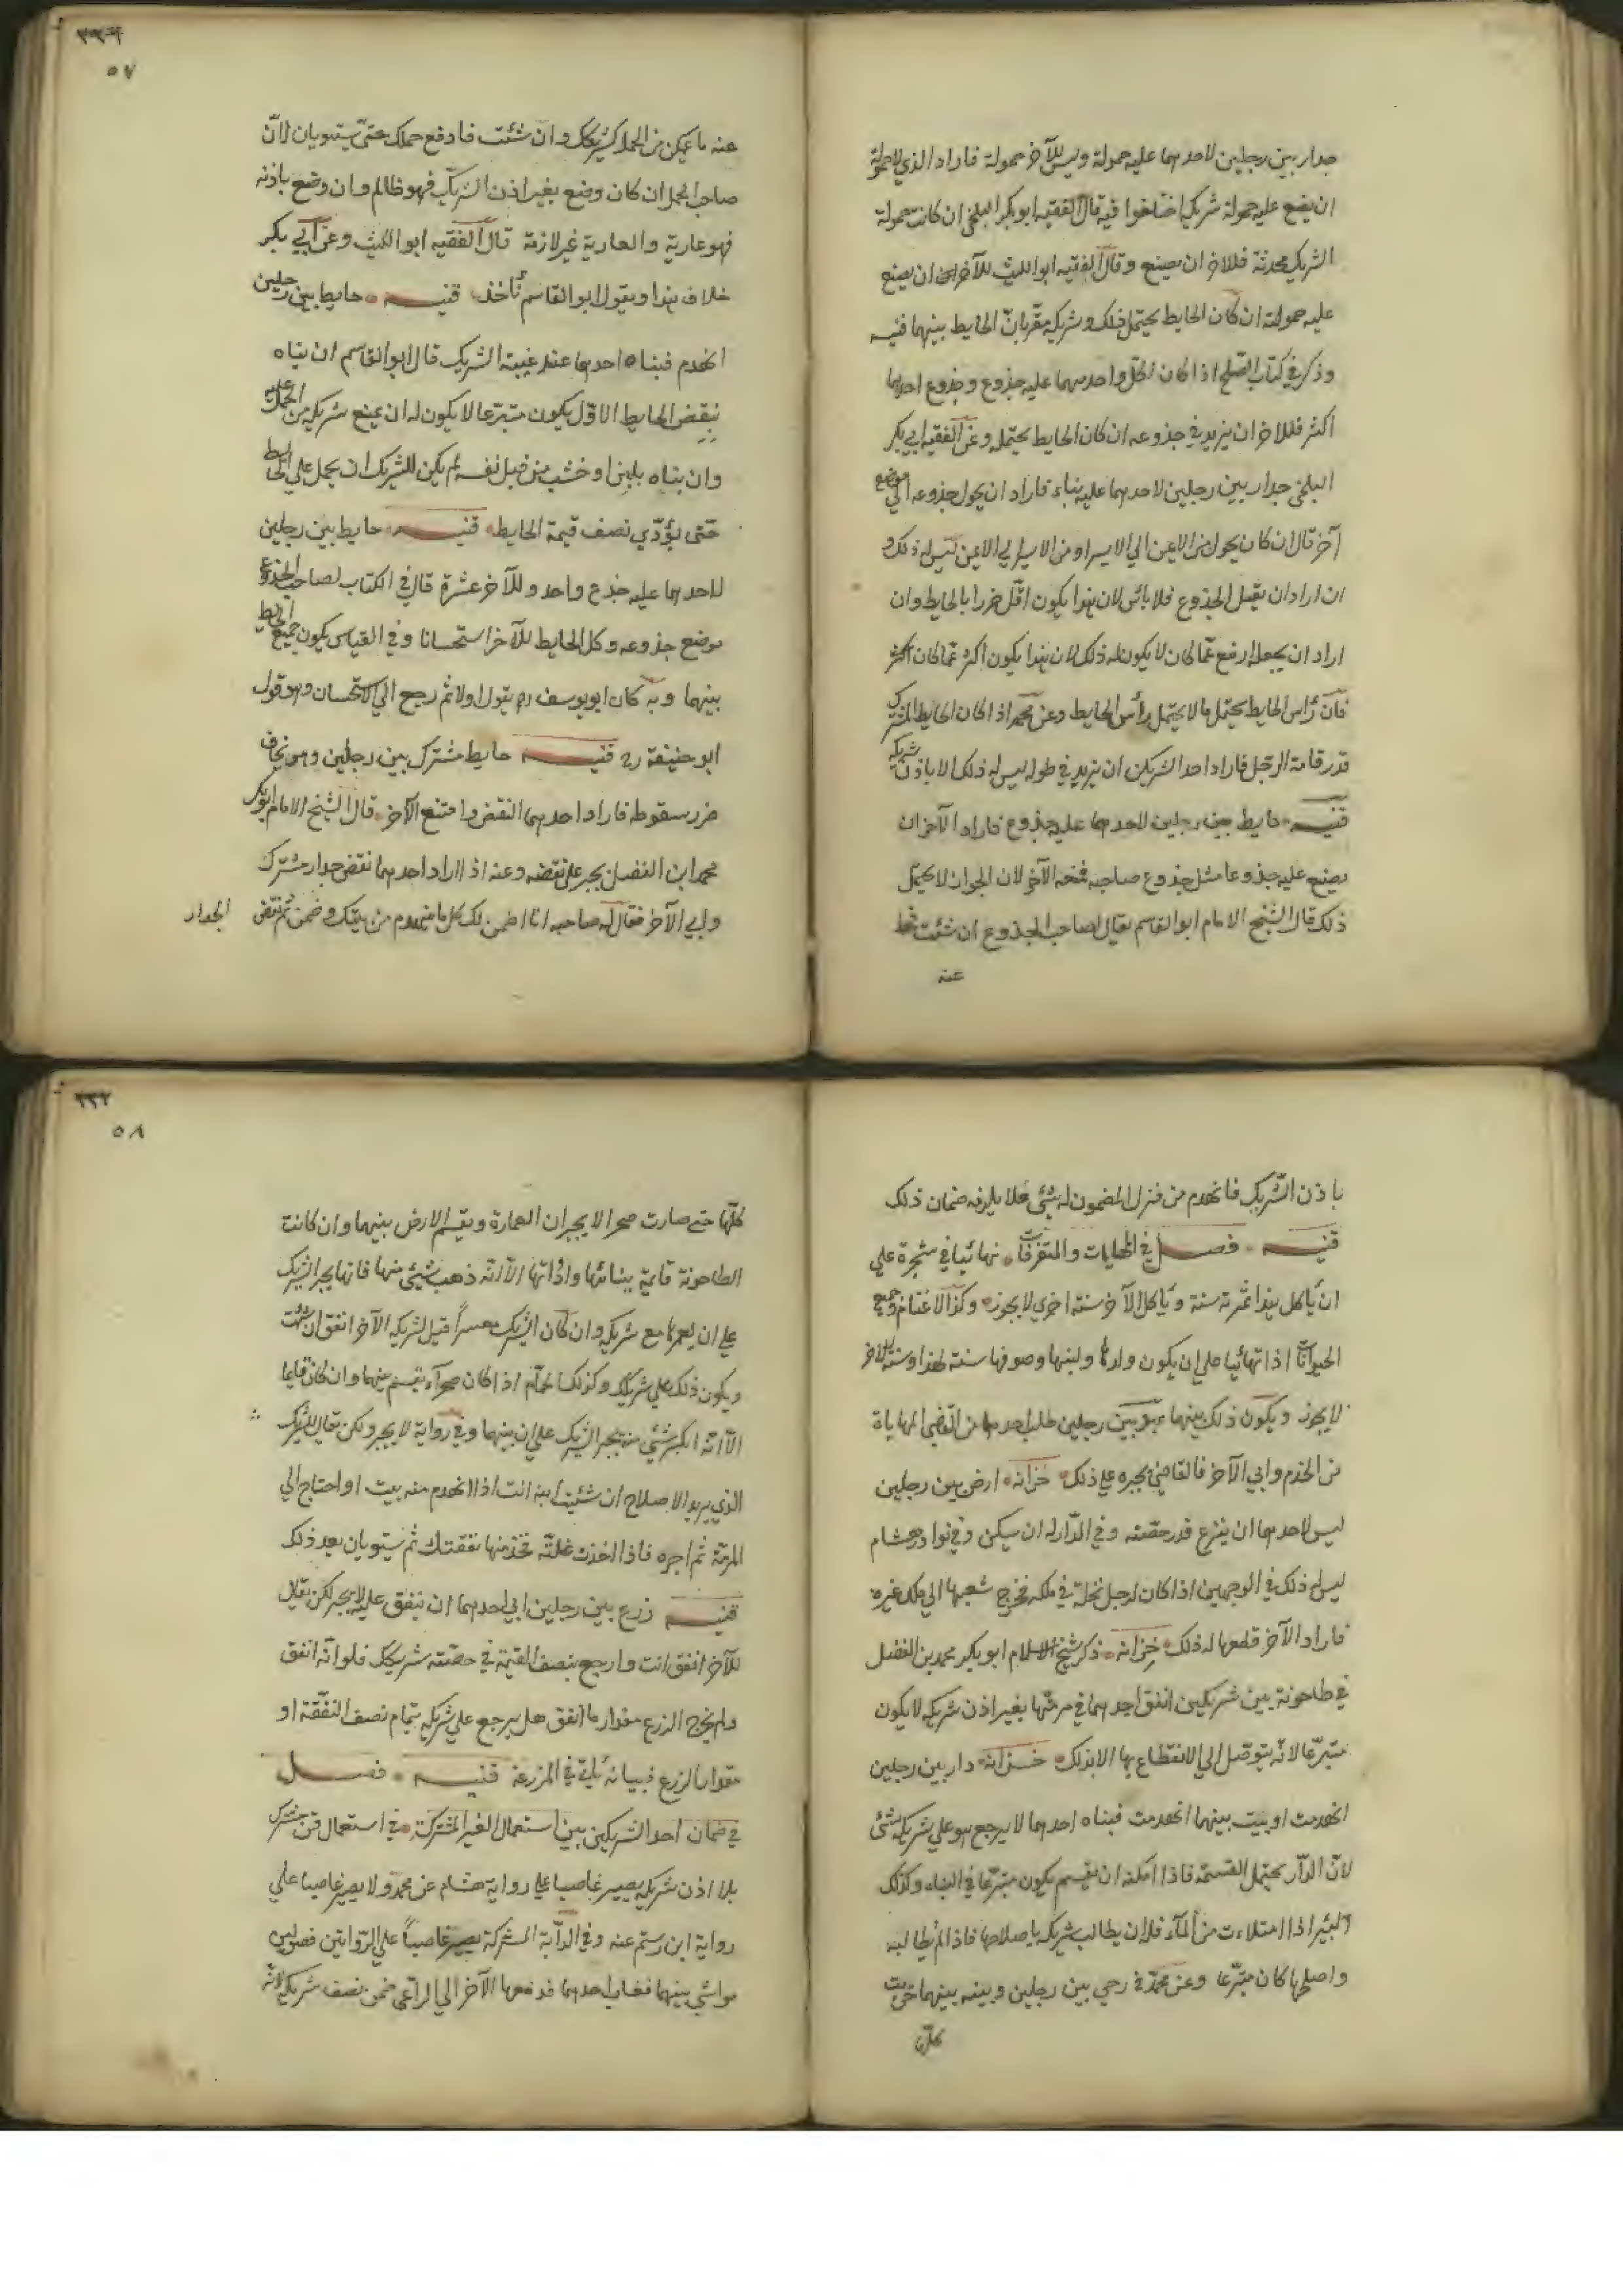 جدار بين رجلين لاحدهما عليه حمولة وليس للآخر حمولة فاراد الذي لا حمولة
ان يضع عليه حمولة شريكه اختلفوا فيه قال الفقيه ابو بكر البلخي ان كانت حمولة
الشريك محدثة فللاخر ان يضع وقال الفقيه ابو الليث للآخر ان يضع
عليه حمولته ان كان الحايط يحتمل ذلك وشريكه مقر بان الحايط بينهما قنيه
وذكر في كتاب الصلح اذا كان لكل واحد منهما عليه جذوع وجذوع احدهما
اكثر فللاخر ان يزيد في جذوعه ان كان الحايط يحتمل وعن الفقيه ابي بكر
البلخي جدار بين رجلين لاحدهما عليه بناء فاراد ان يحول جذوعه الي موضع
آخر قال ان كان يحول من الايمن الي الايسر او من الايسر الي الايمن ليس له ذلك و
ان اراد ان يقبل الجذوع فلا بائس لان هذا يكون اقل ضررا بالحايط وان
اراد ان يجعله ارفع عما كان لا يكون له ذلك لان هذا يكون اكثر عما كان اكثر
فان رأس الحايط يحتمل ما لا يحتمل رأس الحايط وعن محمد اذا كان الحايط المشترك
قدر قامة الرجل فاراد احد الشريكين ان يزيد في طوله ليس له ذلك الا باذن شريكه
قنيه حايط بين رجلين لاحدهما عليه جذوع فاراد الآخر ان
يضع عليه جذوعا مثل جذوع صاحبه فمنعه الآخر لان الجدران لا يحتمل
ذلك قال الشيخ الامام ابو القاسم يقال لصاحب الجذوع ان شئت فحط
عنه
٥٧
عنه ما يمكن من الحمل لشريكك وان شئت فادفع حملك حتي يستويان لان
صاحب الحمل ان كان وضع بغير اذن الشريك فهو ظالم وان وضع باذنه
فهو عارية والعارية غير لازمة قال الفقيه ابو الليث وعن ابي بكر
خلاف هذا وبقول ابو القاسم نأخذ قنيه حايط بين رجلين
انهدم فبناه احدهما عند غيبة الشريك قال ابو القاسم ان بناه
بنقض الحايط الاول يكون متبرعا لا يكون له ان يمنع شريكه من الحمل عليه
وان بناه بلبن او خشب من قبل نفسه لم يكن للشريك ان يحمل علي الحايط
حتى يؤدي نصف قيمة الحايط قنيه حايط بين رجلين
لاحدهما عليه جذع واحد وللآخر عشرة قال في الكتاب لصاحب الجذع
موضع جذوعه وكل الحايط للآخر استحسانا وفي القياس يكون جميع الحايط
بينهما وبه كان ابو يوسف ره يقول اولا ثم رجع الي الاستحسان وهو قول
ابو حنيفة ره قنيه حايط مشترك بين رجلين وهو يخاف
ضرر سقوطه فاراد احدهما النقض وامتنع الآخر قال الشيخ الامام ابو بكر
محمد ابن الفضل يجبر على نقضه وعنه اذا اراد احدهما نقض جدار مشترك
وابي الآخر فقال له صاحبه انا اضمن لك كل ما ينهدم من بيتك وضمن ثم نقض الجدار
باذن الشريك فانهدم من منزل المضمون له شئ فلا يلزمه ضمان ذلك
قنيه فصل في المهايات والمتفرقات تهائيا في شجرة علي
ان يأكل هذا ثمرته سنة ويأكل الآخر سنة اخري لا يجوز وكذا الاغنام وجميع
الحيوانات اذا تهائيا علي ان يكون ولدها ولبنها وصوفها سنة لهذا وسنة للاخر
لا يجوز ويكون ذلك بينهما عبد بين رجلين طلب احدهما من القاضي المهاياة
من الخدم وابي الآخر فالقاضي يجبره علي ذلك خزانه ارض بين رجلين
ليس لاحدهما ان يزرع قدر حصته وفي الدار له ان يسكن وفي نوادر هشام
ليس له ذلك في الوجهين اذا كان لرجل نخلة في ملكه فخرج شعبها الي ملك غيره
فاراد الآخر قطعها له ذلك خزانه ذكر شيخ الاسلام ابو بكر محمد بن الفضل
في طاحونة بين شريكين انفق احدهما في مرمتها بغير اذن شريكه لا يكون
متبرعا لانه يتوصل الي الانتفاع بها الا بذلك خزانه دار بين رجلين
انهدمت او بيت بينهما انهدمت فبناه احدهما لا يرجع هو علي شريكه بشئ
لان الدار يحتمل القسمة فاذا امكنه ان يقسم يكون متبرعا في البناء وكذلك
البئر اذا امتلاءت من الماء فله ان يطالب شريكه باصلاحها فاذا لم يطالبه
واصلحها كان متبرعا وعن محمد في رحي بين رجلين وبيته بينهما خربت
كلها
٣٣٧
٥٨
كلها حتى صارت صحرا لا يجبران العمارة ويقسم الارض بينهما وان كانت
الطاحونة قايمة ببنائها وادّاتها الا انه ذهب شئ منها فانها يجبر الشريك
علي ان يعمرها مع شريكه وان كان الشريك معسرا قيل لشريكه الآخر انفق ان شئت
ويكون ذلك علي شريكك وكذلك الحمام اذا كان صحرآء يقسم بينهما وان كان قايما
الا انه انكسر شئ منه يجبر الشريك علي ان يبنيها وفي رواية لا يجبر ولكن يقال للشريك
الذي يريد الاصلاح ان شئت ابنه انت اذا انهدم منه بيت او احتاج الي
المرمة ثم اجره فاذا اخذت غلته تخذ منها نفقتك ثم يستويان بعد ذلك
قنيه زرع بين رجلين ابي احدهما ان ينفق عليه لا يجبر لكن يقال
للآخر انفق انت وارجع بنصف القيمة في حصته شريكك فلو انه انفق
ولم يخرج الزرع مقدار ما انفق هل يرجع علي شريكه بتمام نصف النفقة او
مقدار الزرع فبيانه يأتي في المزرعة قنيه فصل
في ضمان احد الشريكين بين استعمال الغير المشترك في استعمال قن مشترك
بلا اذن شريكه يصير غاصبا علي رواية هشام عن محمد ولا يصير غاصبا علي
رواية ابن رستم عنه وفي الدابة المشتركة يصير غاصباً علي الروايتين فصولين
مواشي بينهما فغاب احدهما فدفعها الآخر الي الراعي ضمن نصف شريكه لانه